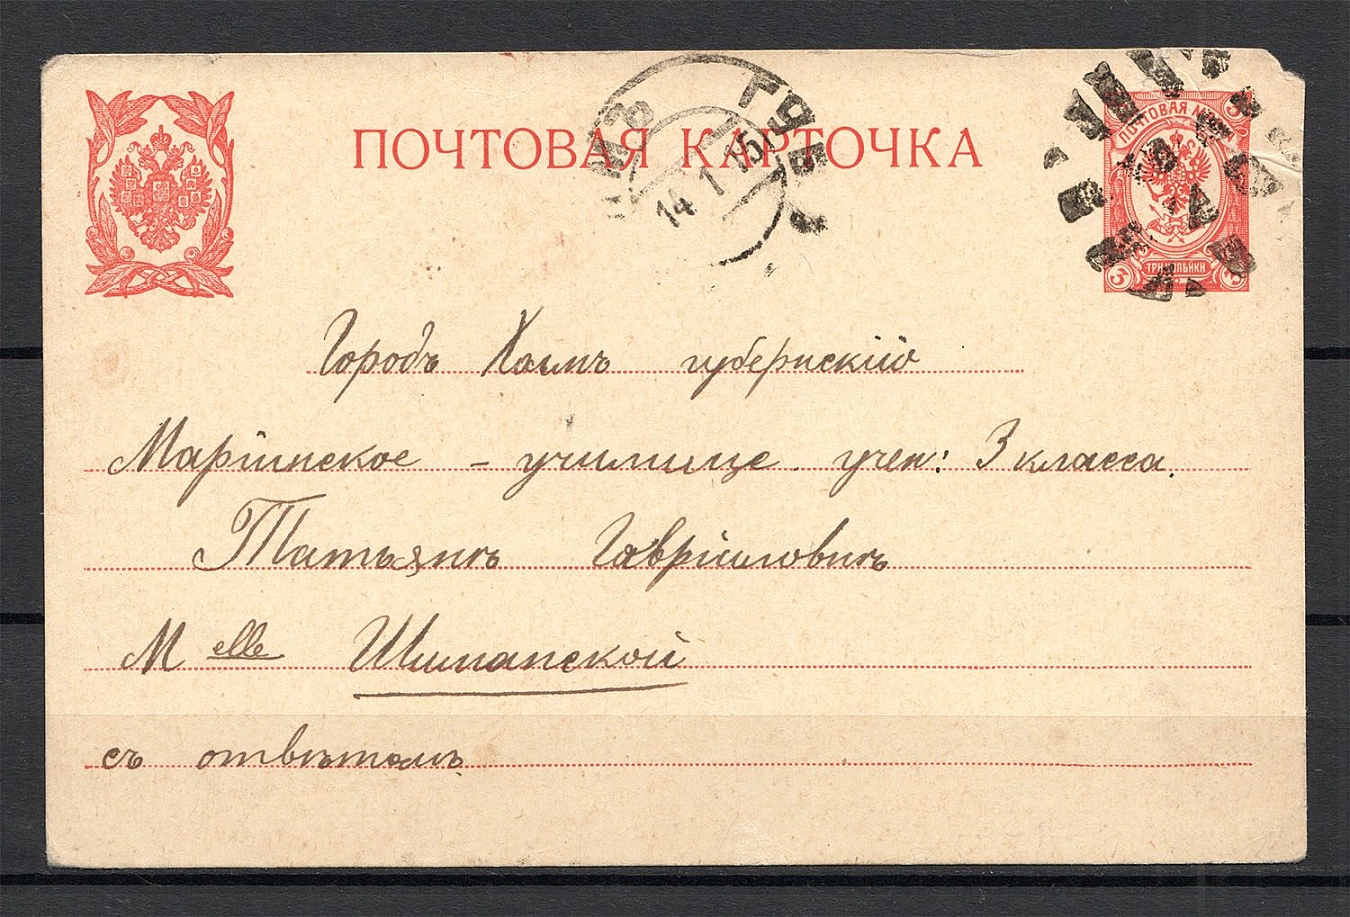 ПОЧТОВАЯ КАРТОЧКА
14 1 15
ПОЧТОВАЯ
3
ТРИ КОПѢЙКИ
3 3
Городъ Холмъ губернскій
Маріинское - училище учен: 3 класса.
Татьянѣ Гавриловнѣ
Melle Шиманской
съ отвѣтомъ